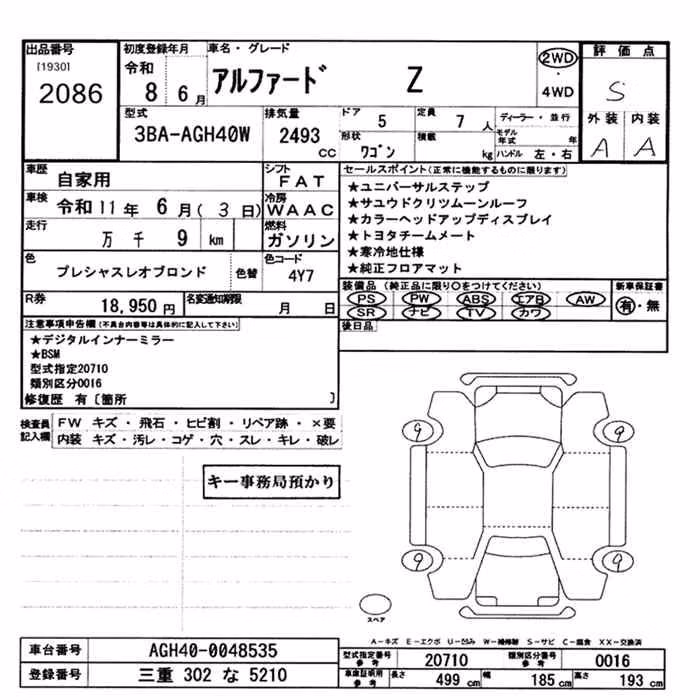 出品番号
[1930]
2086
初度登録年月
令和
8 6月
車名・グレード
アルファード Z
2WD
・
4WD
評価点
S
外装 内装
A A
型式
3BA-AGH40W
排気量
2493
CC
ドア
5
定員
7 人
ディーラー・並行
モデル年式 年
形状
ワゴン
積載
kg
ハンドル 左・右
車歴
自家用
シフト
FAT
車検
令和11年 6月(3日)
冷房
WAAC
走行
万 千 9 km
燃料
ガソリン
色
プレシャスレオブロンド
色替
色コード
4Y7
R券
18,950円
名変通知期限
月 日
セールスポイント(正常に機能するものに限ります)
★ユニバーサルステップ
★サユウドクリツムーンルーフ
★カラーヘッドアップディスプレイ
★トヨタチームメート
★寒冷地仕様
★純正フロアマット
装備品(純正品に限り○をつけてください)
PS PW ABS エアB AW
SR ナビ TV カワ
新車保証書
有・無
後日品
注意事項申告欄(不具合内容等は具体的に記入して下さい)
★デジタルインナーミラー
★BSM
型式指定20710
類別区分0016
修復歴 有〔箇所 〕
検査員記入欄
FW キズ・飛石・ヒビ割・リペア跡・×要
内装 キズ・汚レ・コゲ・穴・スレ・キレ・破レ
キー事務局預かり
9 9
9 9
スペア
A-キズ E-エクボ U-凹み W-補修跡 S-サビ C-腐食 XX-交換済
車台番号
AGH40-0048535
登録番号
三重 302 な 5210
型式指定番号
参考
20710
類別区分番号
参考
0016
車庫証明用
参考
長さ 499 cm 幅 185 cm 高さ 193 cm